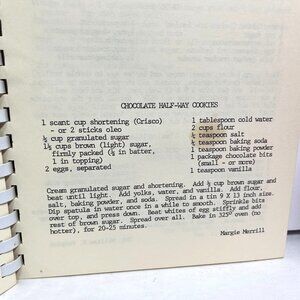 CHOCOLATE HALF-WAY COOKIES
1 scant cup shortening (Crisco)
- or 2 sticks oleo
½ cup granulated sugar
1½ cups brown (light) sugar,
firmly packed (½ in batter,
1 in topping)
2 eggs, separated
1 tablespoon cold water
2 cups flour
½ teaspoon salt
½ teaspoon baking soda
1 teaspoon baking powder
1 package chocolate bits
(small - or more)
1 teaspoon vanilla
Cream granulated sugar and shortening. Add ½ cup brown sugar and
beat until light. Add yolks, water, and vanilla. Add flour,
salt, baking powder, and soda. Spread in a tin 9 X 13 inch size.
Dip spatula in water once in a while to smooth. Sprinkle bits
over top, and press down. Beat whites of egg stiffly and add
rest of brown sugar. Spread over all. Bake in 325° oven (no
hotter), for 20-25 minutes.
Margie Merrill